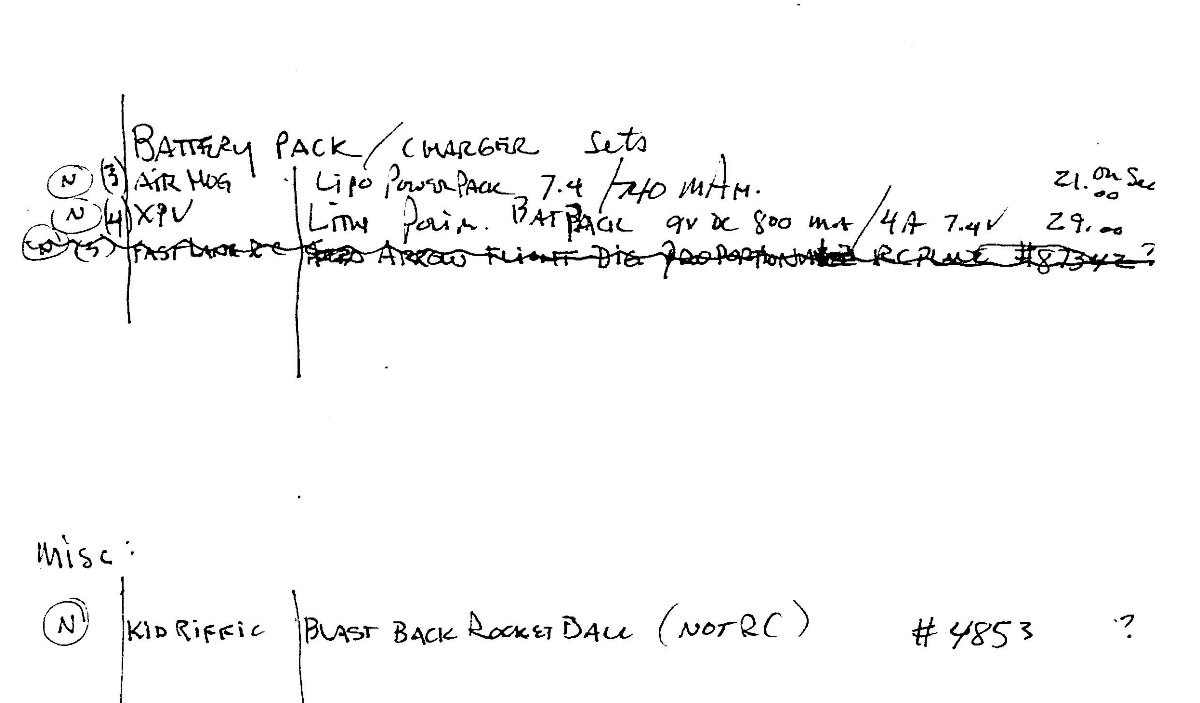 BATTERY PACK / CHARGER Sets
N (3) AIR HOG LIPO POWER PACK 7.4 / 740 MAH. 21.00
N (4) XPV LITH POLIM. BAT PACK 9V DC 800 MA / 4A 7.4V 29.00
N (5) FAST LANE RC ARROW FLIGHT DIG PROPORTIONAL RC PLANE #87342 ?
Misc:
N KID RIFFIC BLAST BACK ROCKET BALL (NOT RC) #4853 ?